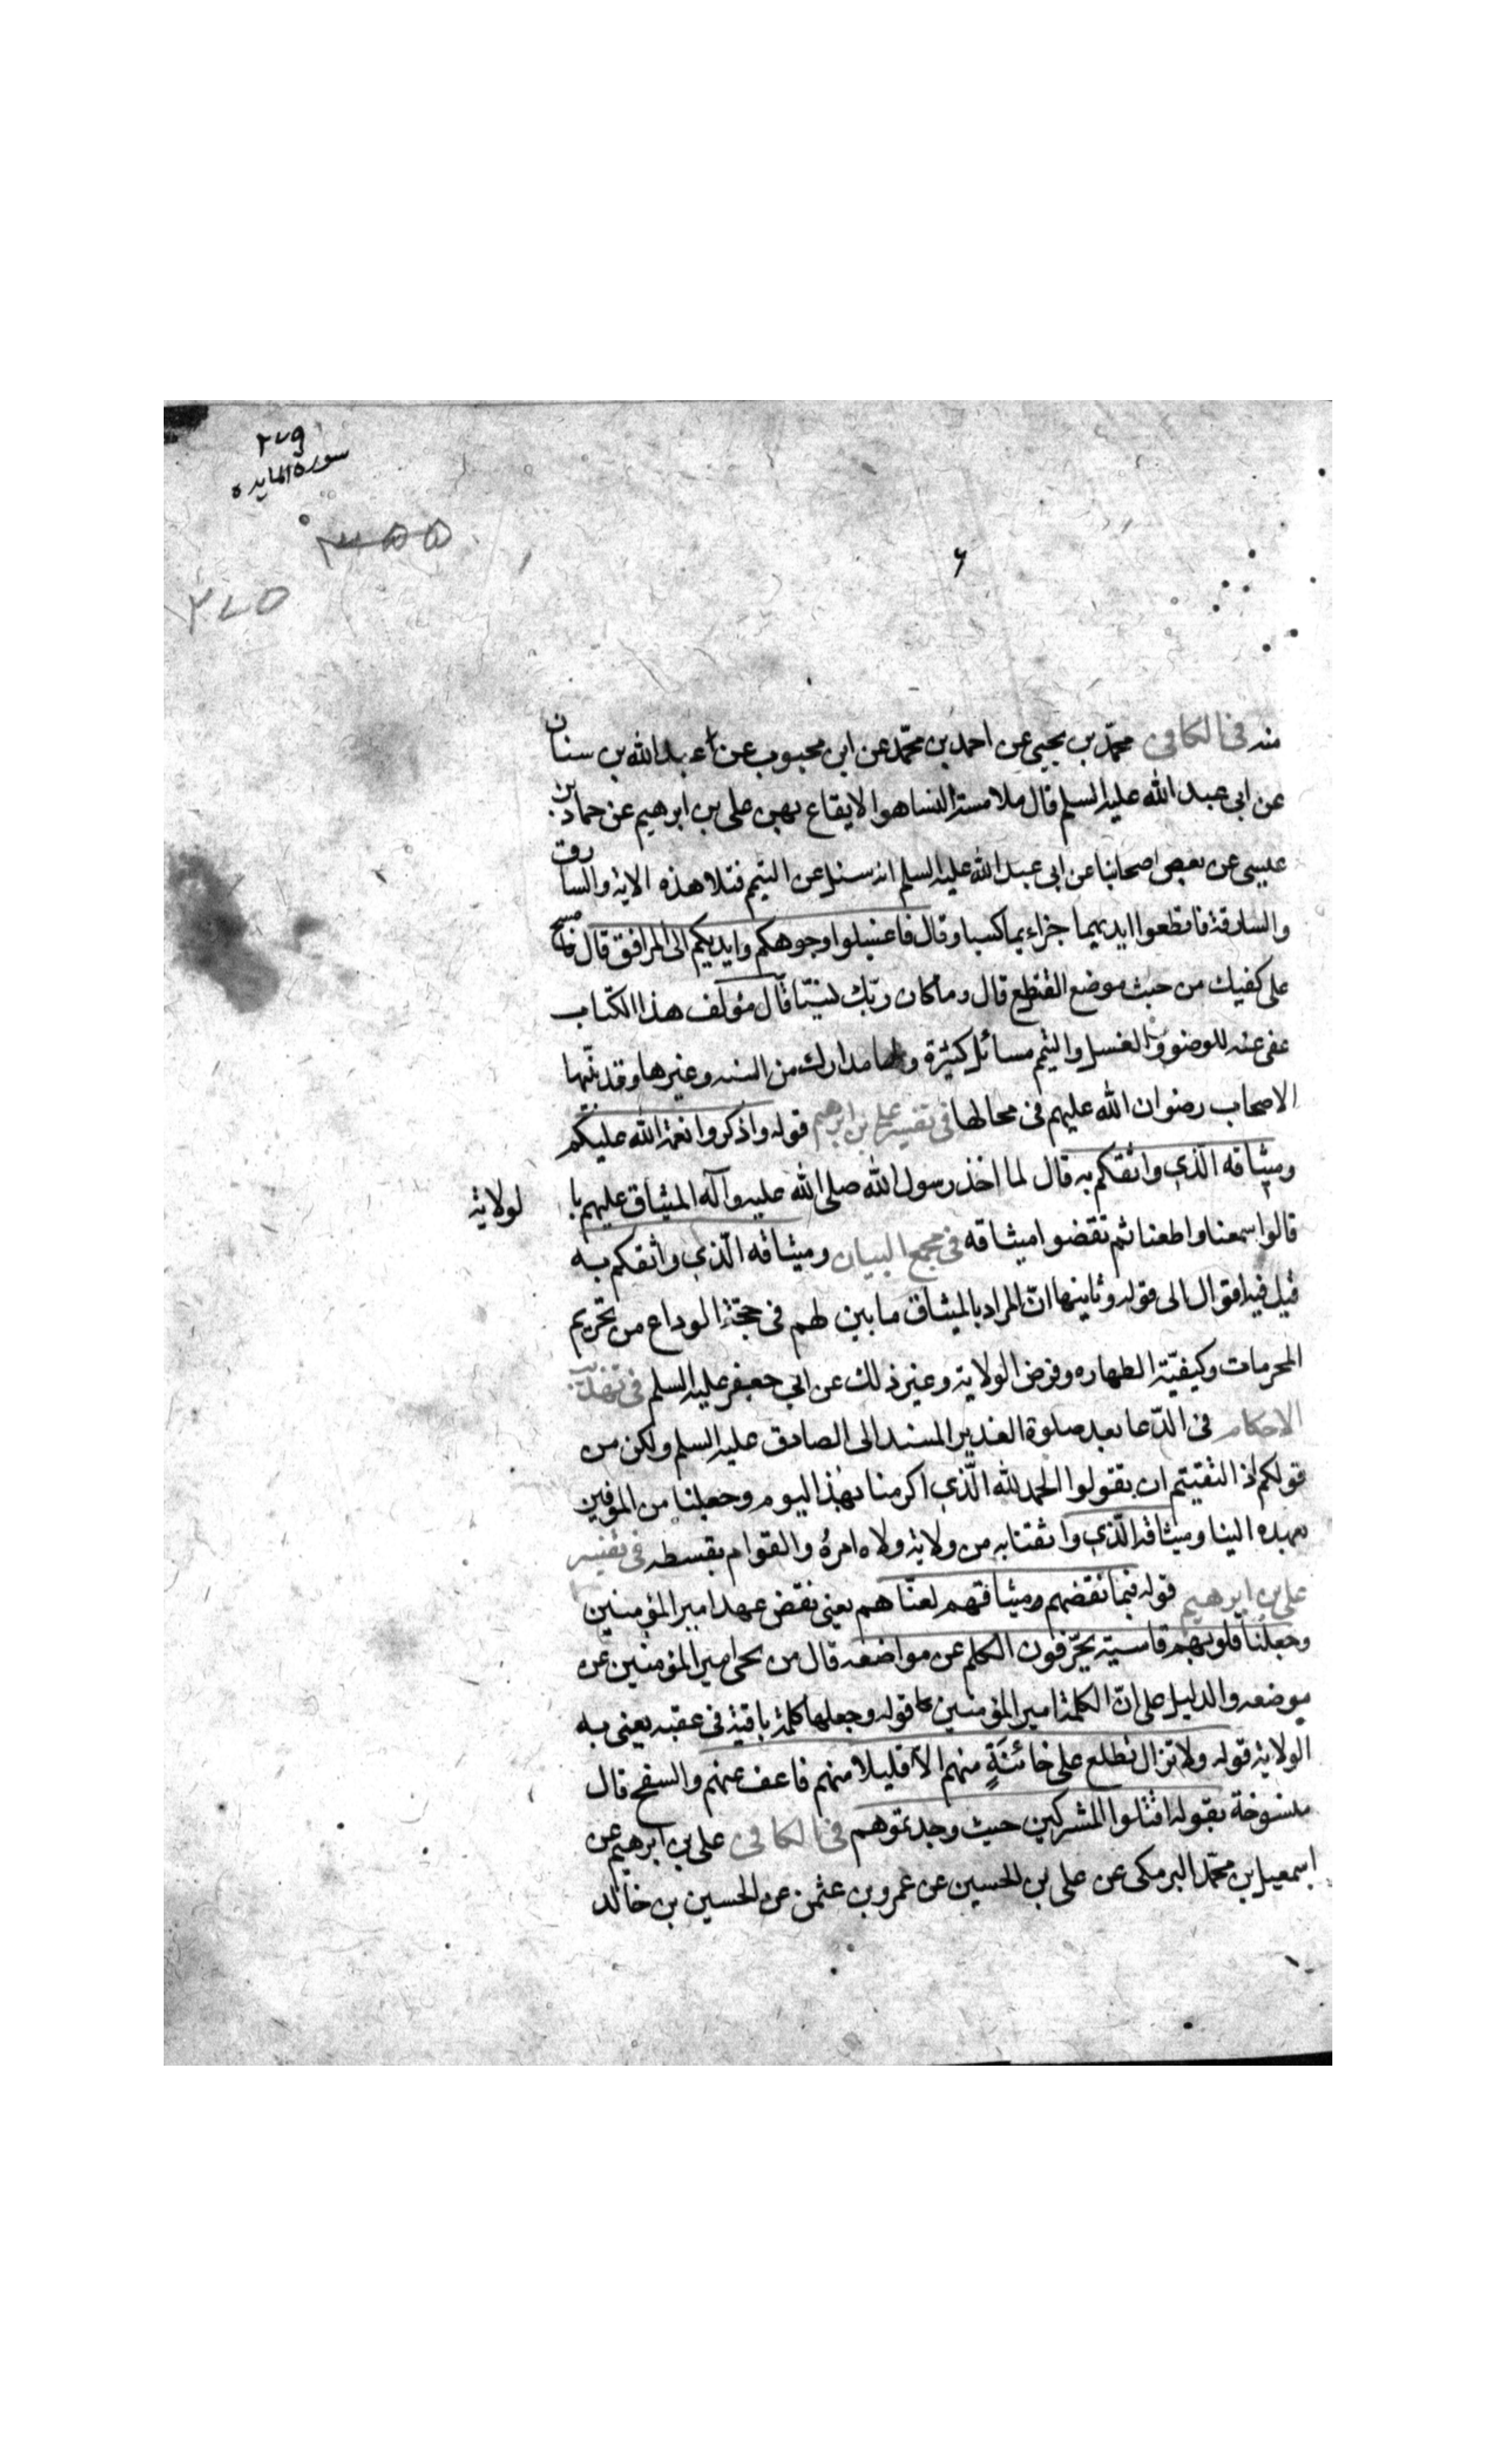 سورة المايده
٦
منه في الكافي محمّد بن يحيى عن احمد بن محمّد عن ابن محبوب عن عبد الله بن سنان
عن ابى عبد الله عليه السلم قال ملامسة النسا هوا لايقاع بهن على بن ابرهيم عن حماد بن
عيسى عن بعض اصحابنا عن ابى عبد الله عليه السلم انه سئل عن التيمم فتلا هذه الاية والسارق
والسارقة فاقطعوا ايديهما جزاء بما كسبا وقال فاغسلوا وجوهكم وايديكم الى المرافق قال فامسح
على كفيك من حيث موضع القطع قال وما كان ربّك نسيّا قال مؤلف هذا الكتاب
عفى عنه للوضوء والغسل والتيمم مسائل كثيرة ولها مدارك من السنه وغيرها وقد بيّنها
الاصحاب رضوان الله عليهم فى محالها فى تفسير على بن ابرهيم قوله واذكروا نعمة الله عليكم
وميثاقه الّذي واثقكم به قال لما اخذ رسول الله صلى الله عليه وآله الميثاق عليهم با لولاية
قالوا سمعنا واطعنا ثم نقضوا ميثاقه فى مجمع البيان وميثاقه الّذي واثقكم به
قيل فيه اقوال الى قوله وثانيها انّ المراد بالميثاق ما بين لهم فى حجّة الوداع من تحريم
المحرمات وكيفيّة الطهاره وفرض الولاية وغير ذلك عن ابي جعفر عليه السلم فى تهذيب
الاحكام فى الدّعا بعد صلوة الغدير المسند الى الصادق عليه السلم ولكن من
قولكم اذ التقيتم ان تقولوا الحمد لله الّذي اكرمنا بهذا اليوم وجعلنا من الموفين
بعهده الينا وميثاقه الّذي واثقنا به من ولاية ولاه امره والقوام بقسطه فى تفسير
على بن ابرهيم قوله فبما نقضهم وميثاقهم لعنّاهم يعنى نقض عهد امير المؤمنين
وجعلنا قلوبهم قاسية يحرّفون الكلم عن مواضعه قال من نحى امير المؤمنين عن
موضعه والدليل على انّ الكلمة امير المؤمنين قوله وجعلها كلمة باقية فى عقبه يعنى به
الولاية قوله ولا تزال تطلع على خائنةٍ منهم الا قليلا منهم فاعف عنهم والسفح قال
منسوخة بقوله اقتلوا المشركين حيث وجدتموهم فى الكافى على بن ابرهيم عن
اسمعيل بن محمّد البرمكى عن على بن الحسين عن عمرو بن عثمن عن الحسين بن خالد